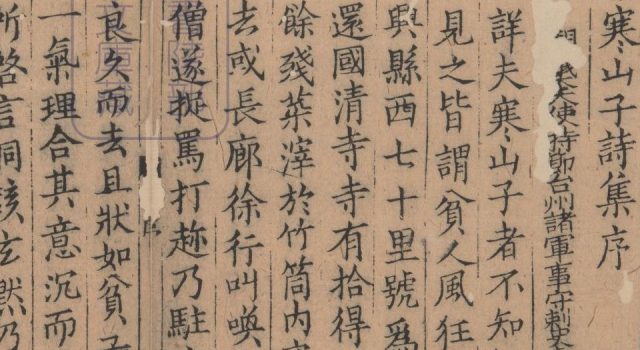 寒山子詩集序
使持節台州諸軍事守刺史
詳夫寒山子者不知
見之皆謂貧人風狂
興縣西七十里號為
還國清寺寺有拾得
餘殘菜滓於竹筒內
去或長廊徐行叫喚
僧遂捉罵打趂乃駐
良久而去且狀如貧子
一氣理合其意沉而
所啓言洞該玄默乃